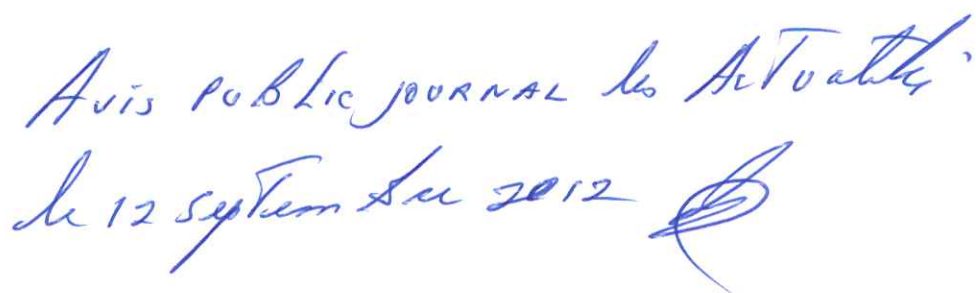 Avis public journal les Actualités
le 12 septembre 2012